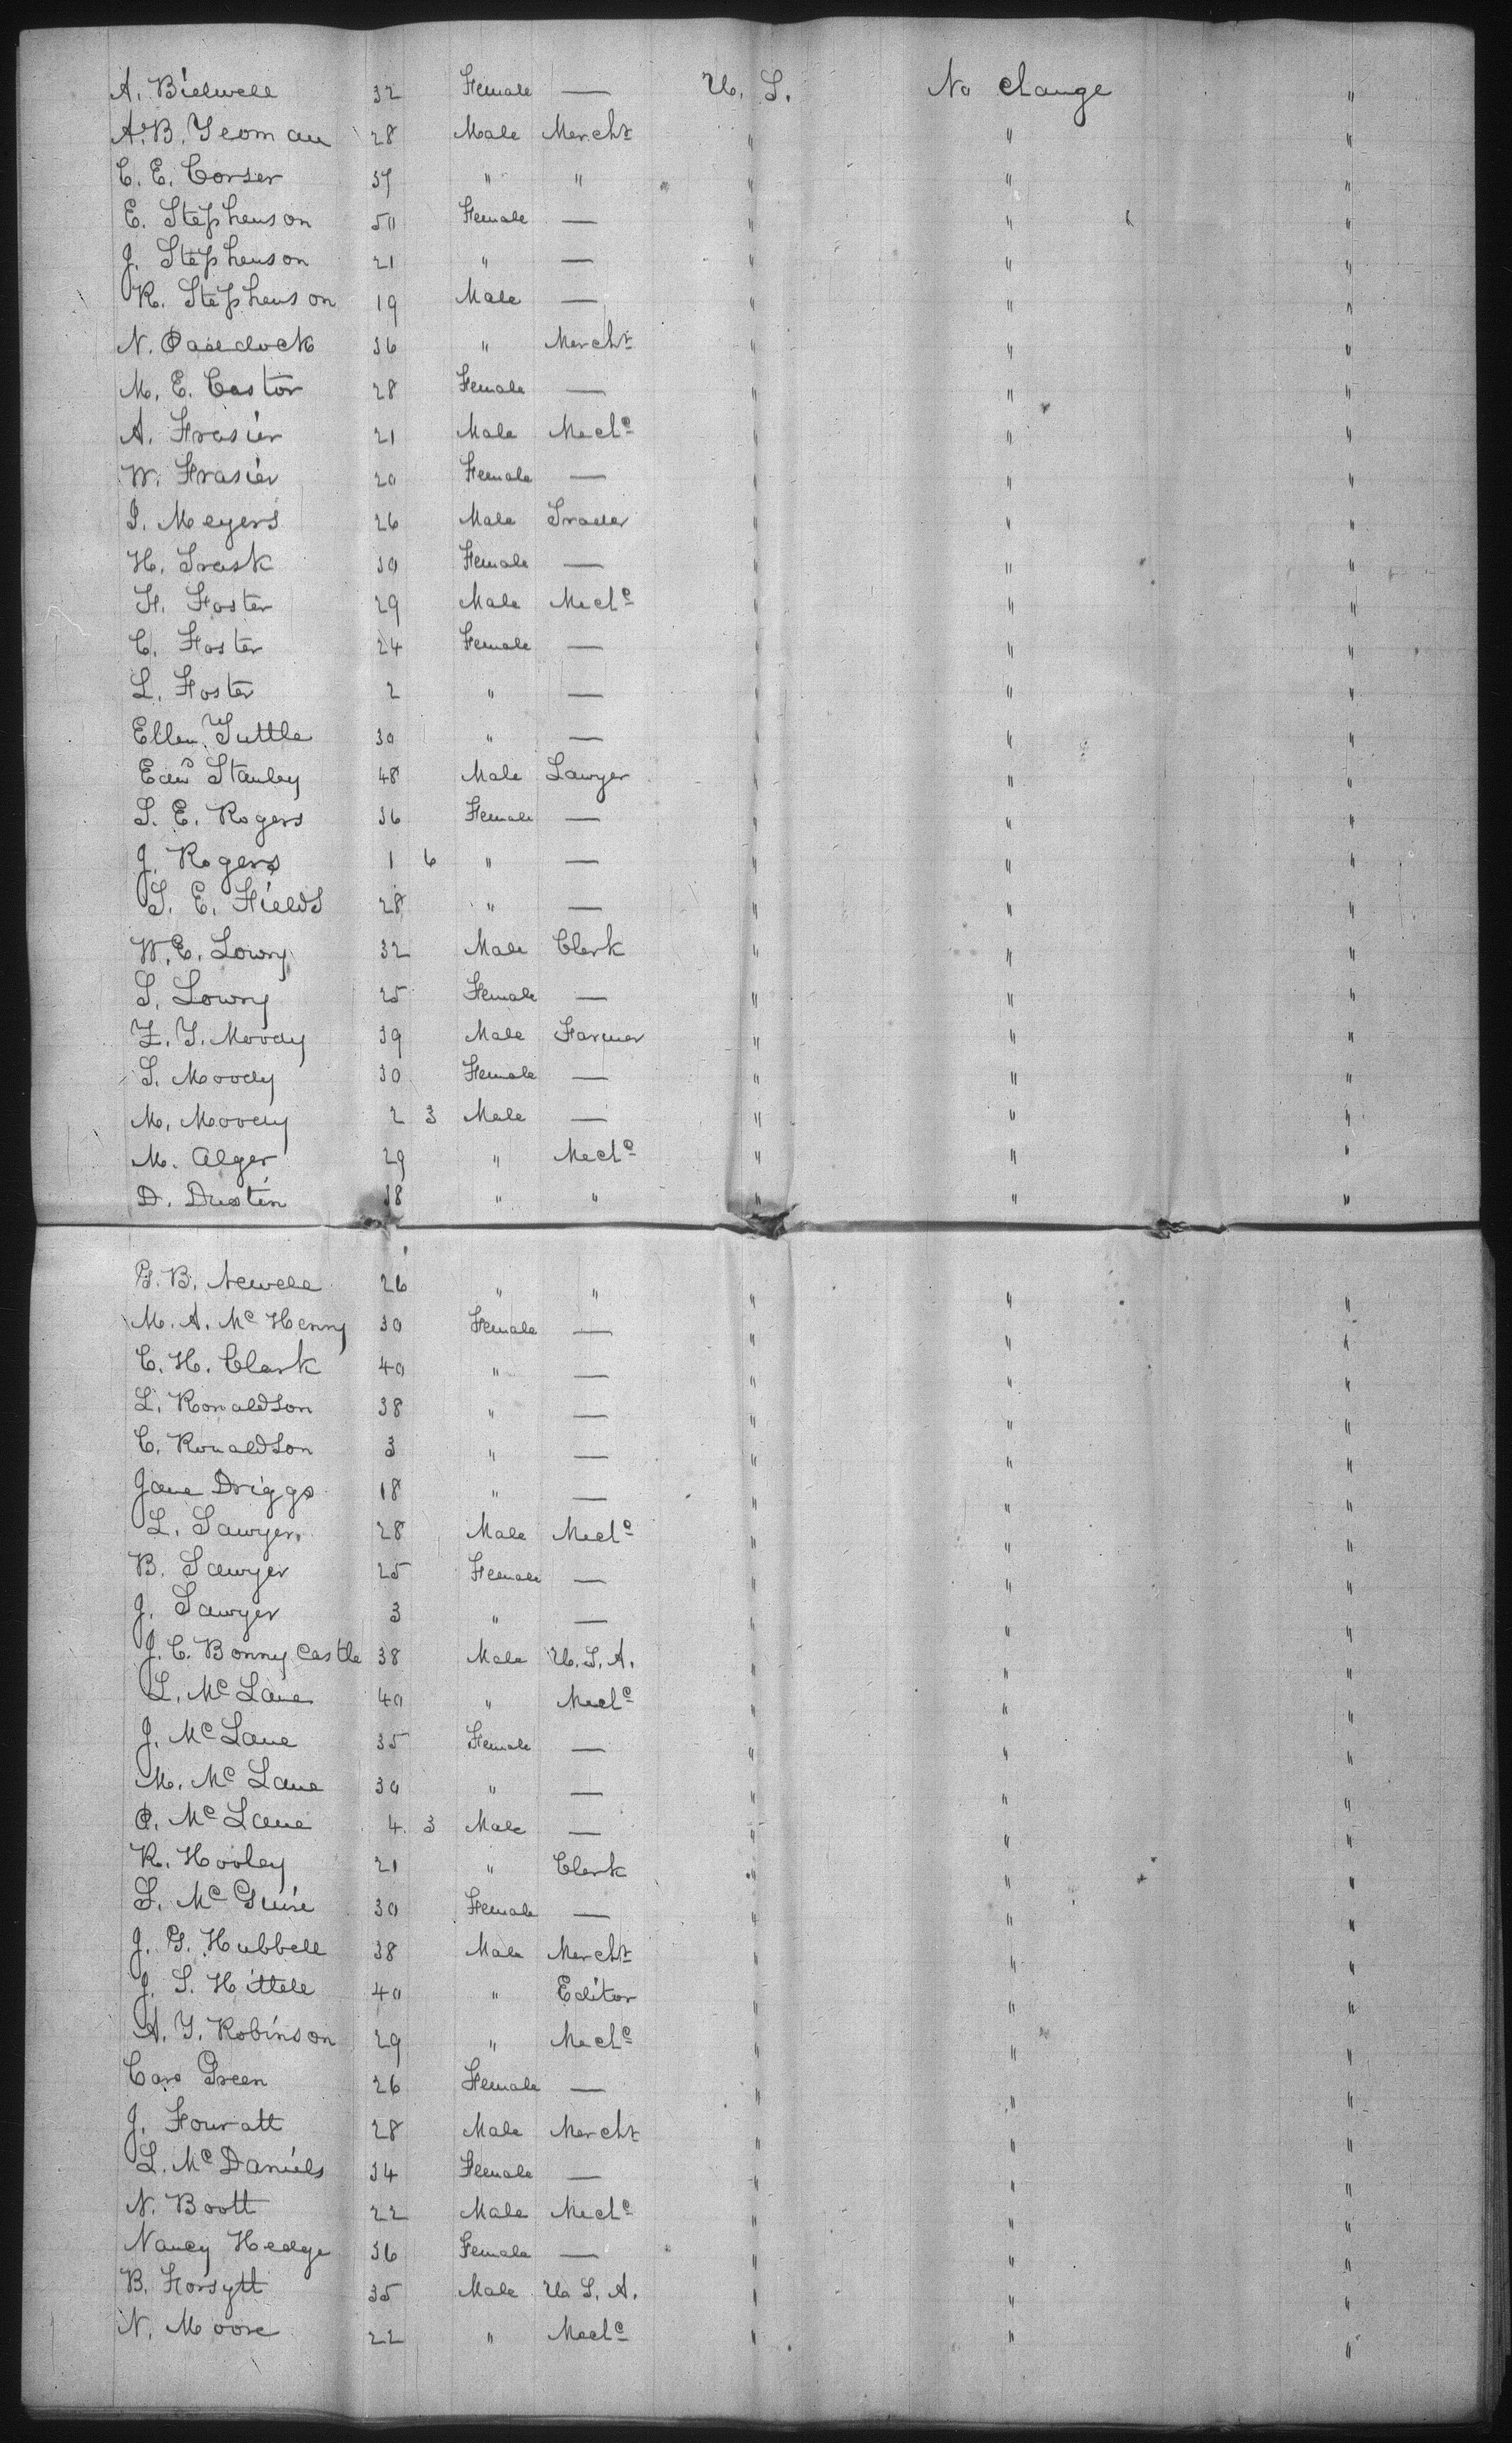 A. Bidwell 32 Female — U. S. No change "
A. B. Yeoman 28 Male Mercht " " "
C. E. Corser 37 " " " " "
E. Stephenson 50 Female — " " "
J. Stephenson 21 " — " " "
R. Stephenson 19 Male — " " "
N. Paddock 36 " Mercht " " "
M. E. Castor 28 Female — " " "
A. Frasier 21 Male Mechc " " "
W. Frasier 20 Female — " " "
I. Meyers 26 Male Trader " " "
H. Trask 30 Female — " " "
F. Foster 29 Male Mechc " " "
C. Foster 24 Female — " " "
L. Foster 2 " — " " "
Ellen Tuttle 30 " — " " "
Edwd Stanley 48 Male Lawyer " " "
S. E. Rogers 36 Female — " " "
J. Rogers 1 6 " — " " "
S. E. Fields 28 " — " " "
W. E. Lowry 32 Male Clerk " " "
S. Lowry 25 Female — " " "
Z. Y. Moody 39 Male Farmer " " "
S. Moody 30 Female — " " "
M. Moody 2 3 Male — " " "
M. Alger 29 " Mechc " " "
D. Dustin 38 " " " " "
G. B. Newell 26 " " " " "
M. A. McHenry 30 Female — " " "
C. H. Clark 40 " — " " "
L. Ronaldson 38 " — " " "
C. Ronaldson 3 " — " " "
Jane Driggs 18 " — " " "
L. Sawyer 28 Male Mechc " " "
B. Sawyer 25 Female — " " "
J. Sawyer 3 " — " " "
J. C. Bonny Castle 38 Male U. S. A. " " "
L. McLane 40 " Mechc " " "
J. McLane 35 Female — " " "
M. McLane 30 " — " " "
O. McLane 4 3 Male — " " "
R. Hooley 21 " Clerk " " "
S. McGuire 30 Female — " " "
J. G. Hubbell 38 Male Mercht " " "
J. S. Hittell 40 " Editor " " "
A. Y. Robinson 29 " Mechc " " "
Caro Green 26 Female — " " "
J. Fouratt 28 Male Mercht " " "
L. McDaniels 34 Female — " " "
N. Boott 22 Male Mechc " " "
Nancy Hedge 36 Female — " " "
B. Forsytt 35 Male U. S. A. " " "
N. Moore 22 " Mechc " " "